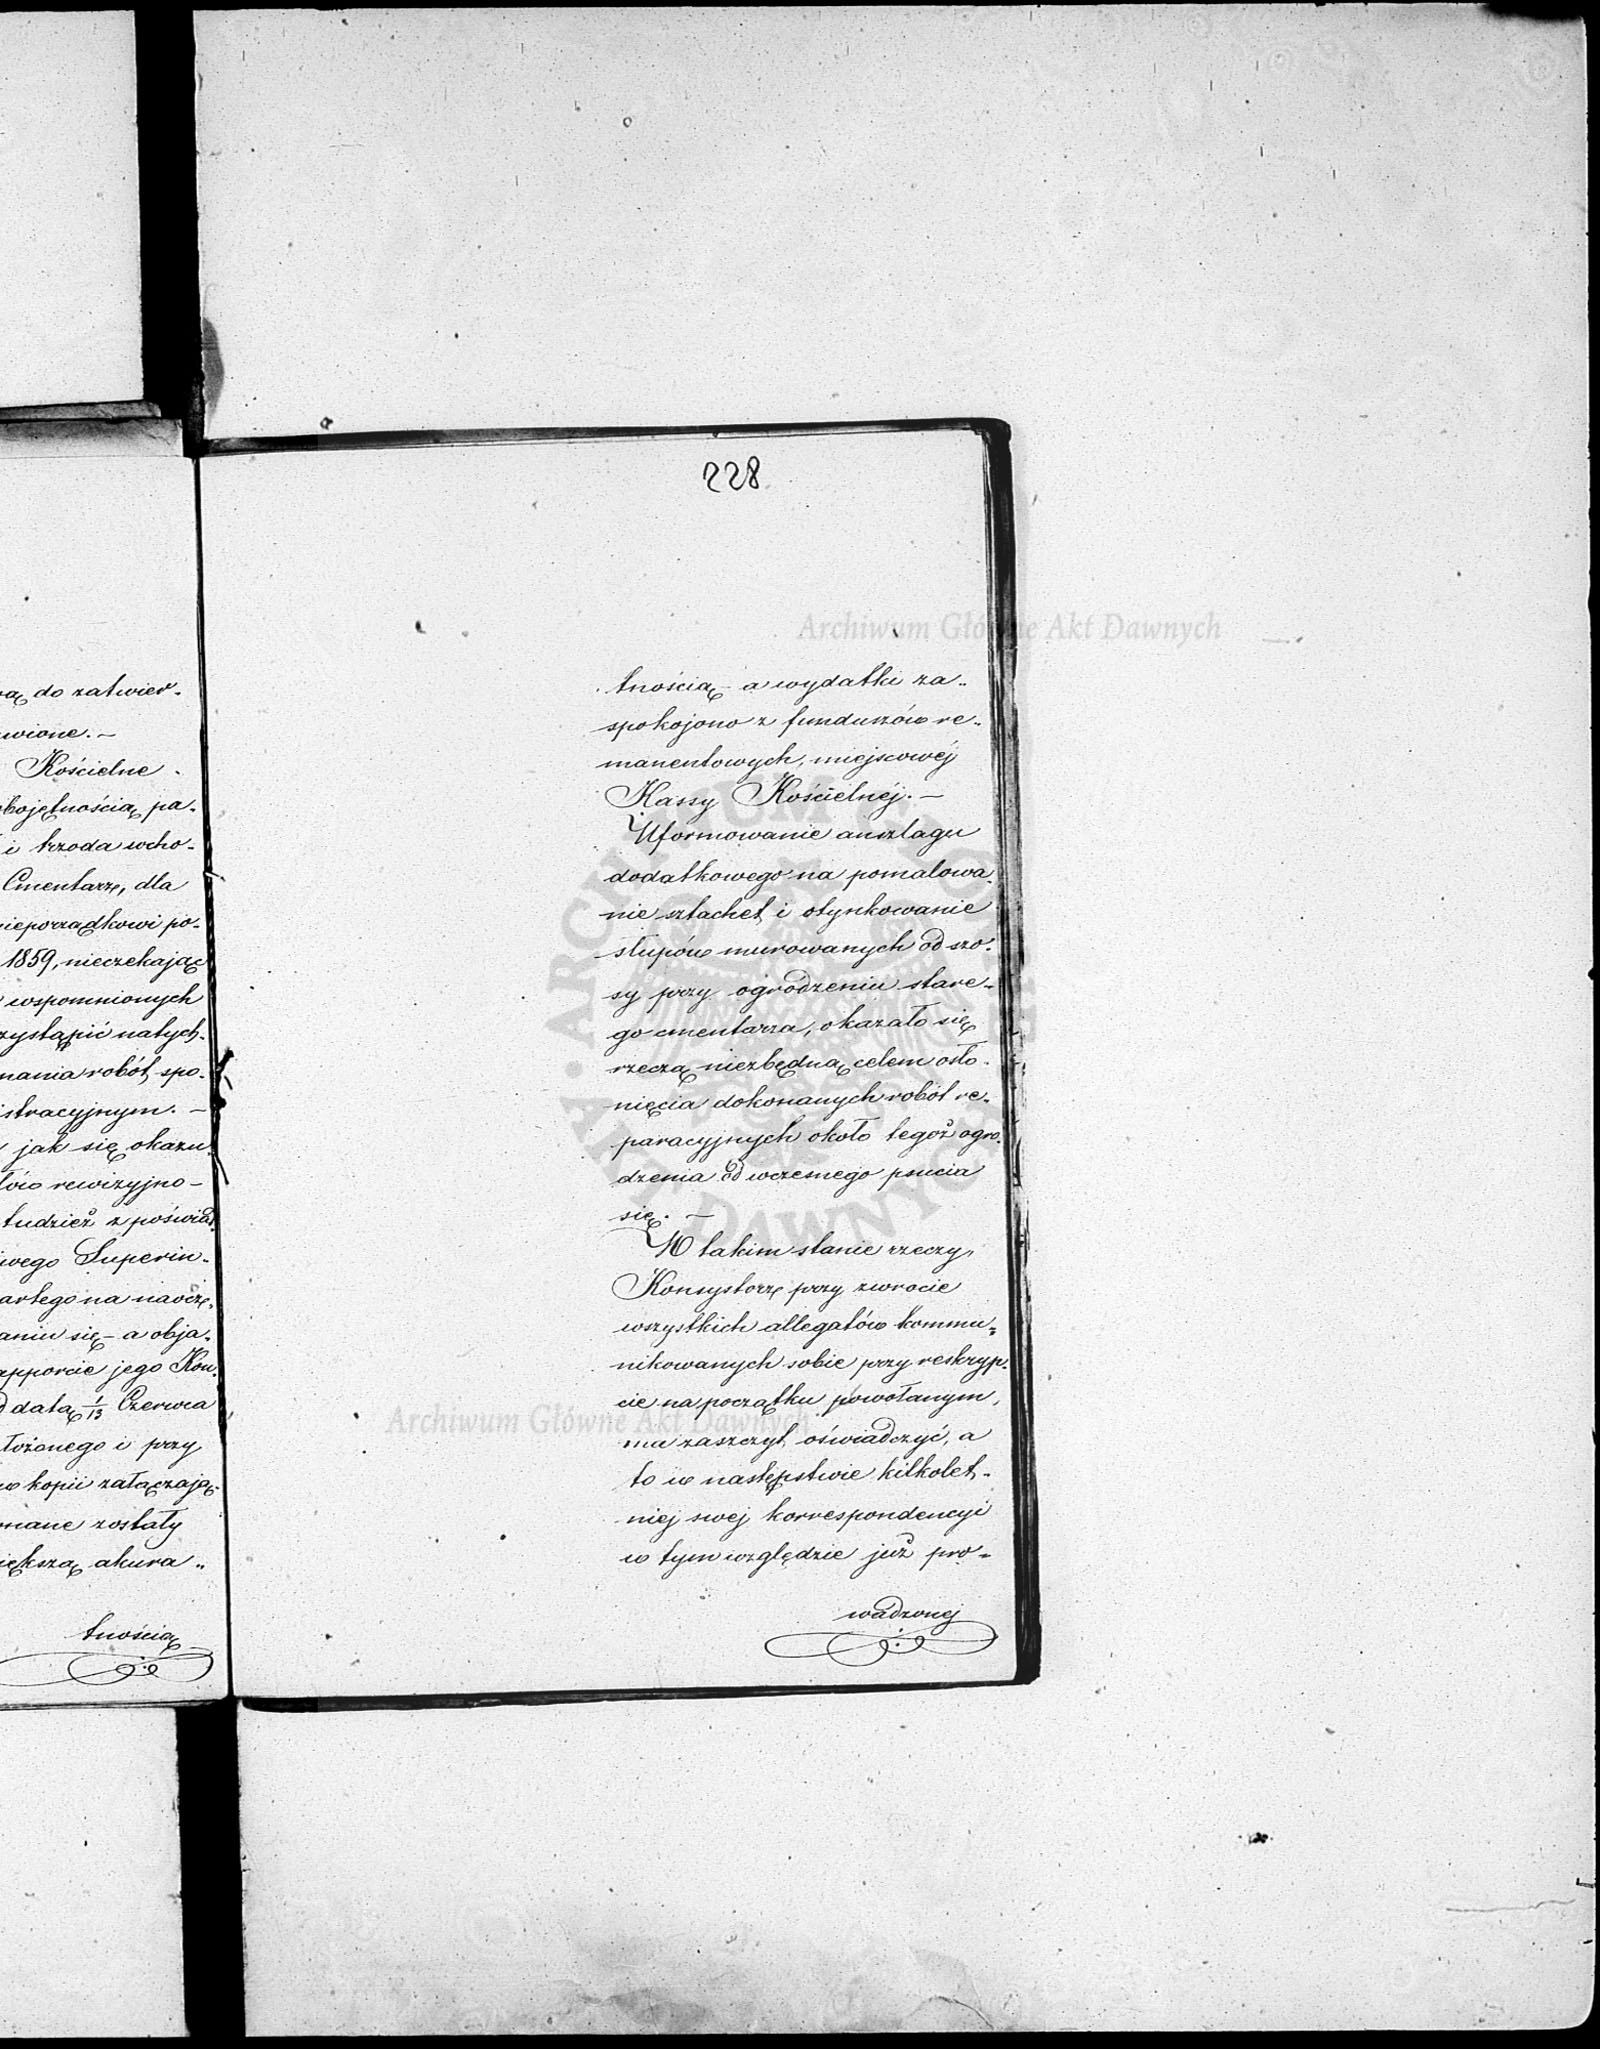 wą do zatwier-
wione. -
Kościelne
obojętnością pa-
i trzoda wcho-
Cmentarze, dla
nieporządkowi po-
1859, nieczekając
wspomnionych
zystąpić natych-
nania robót spo-
istracyjnym. -
jak się okazu
tów rewizyjno-
tudzież z poświad
wego Superin-
artego na naocz-
aniu się - a obja-
apporcie jego Kon-
datą 1/13 Czerwca
łożonego i przy
w kopii załączają-
nane zostały
iększą akura-
tnością
228
tnością - a wydatki za-
spokojono z funduszów re-
manentowych, miejscowéj
Kassy Kościelnéj. -
Uformowanie anszlagu
dodatkowego na pomalowa-
nie sztachet i otynkowanie
słupów murowanych od szo-
sy przy ogrodzeniu stare-
go cmentarza, okazało się
rzeczą niezbędną celem osło-
nięcia dokonanych robót re-
paracyjnych około tegoż ogro-
dzenia od wczesnego psucia
się. -
W takim stanie rzeczy,
Konsystorz przy zwrocie
wszystkich allegatów kommu-
nikowanych sobie przy reskryp-
cie na początku powołanym,
ma zaszczyt oświadczyć, a
to w następstwie kilkolet-
niej swej korrespondencyi
w tym względzie już pro-
wadzonej
Archiwum Główne Akt Dawnych
Archiwum Główne Akt Dawnych